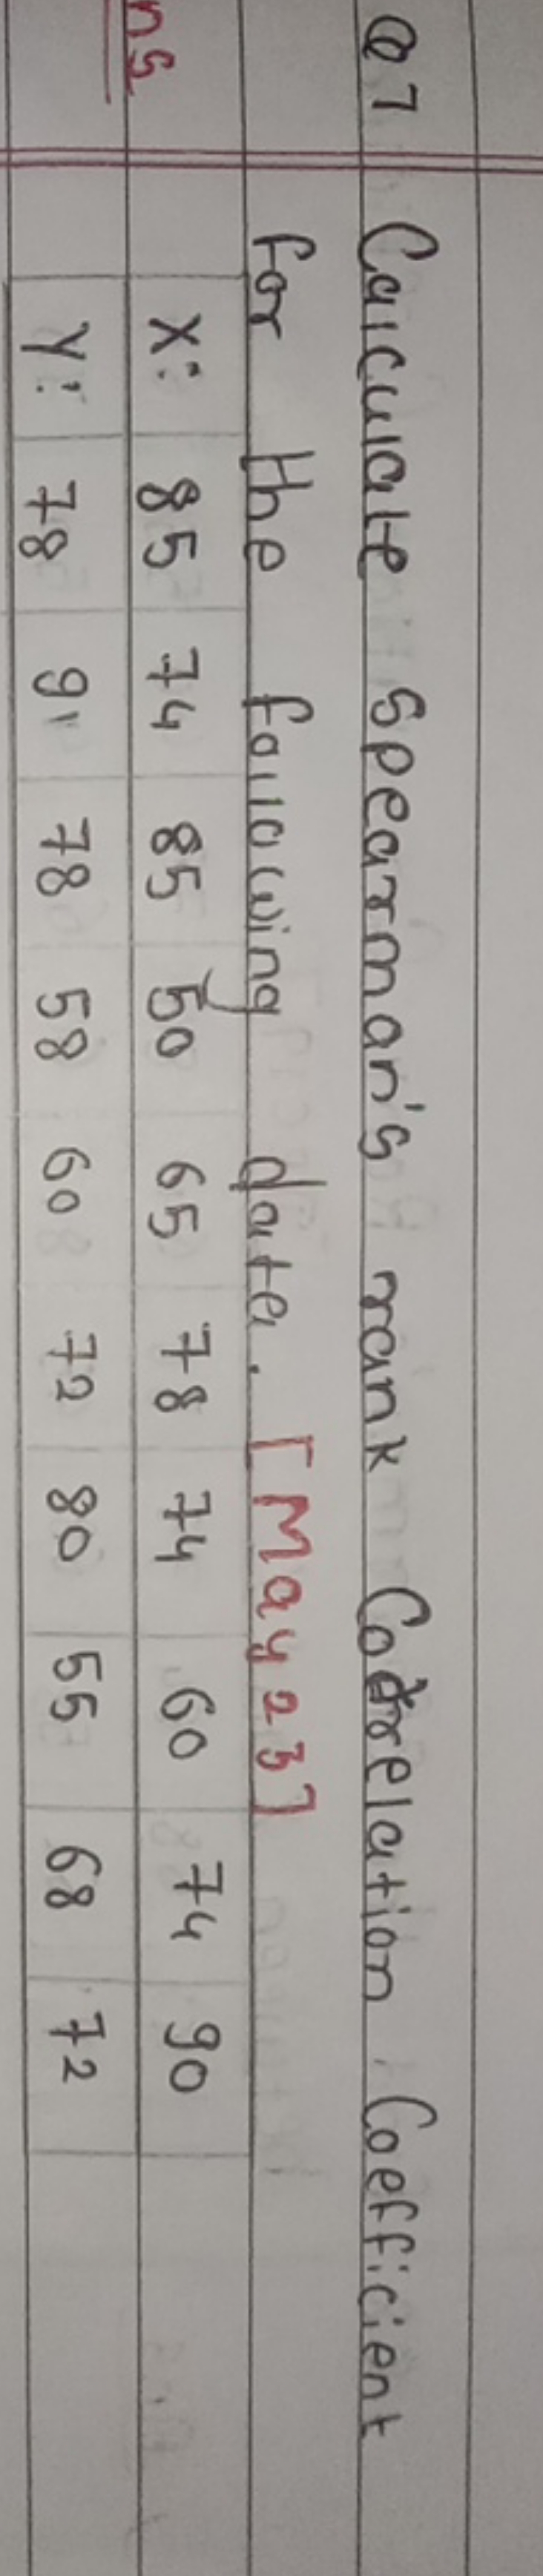 Q7 Calculate Spearman's rank Correlation Coefficient
for the following data. [May 23]
Ans
X: 85 74 85 50 65 78 74 60 74 90
Y: 78 91 78 58 60 72 80 55 68 72